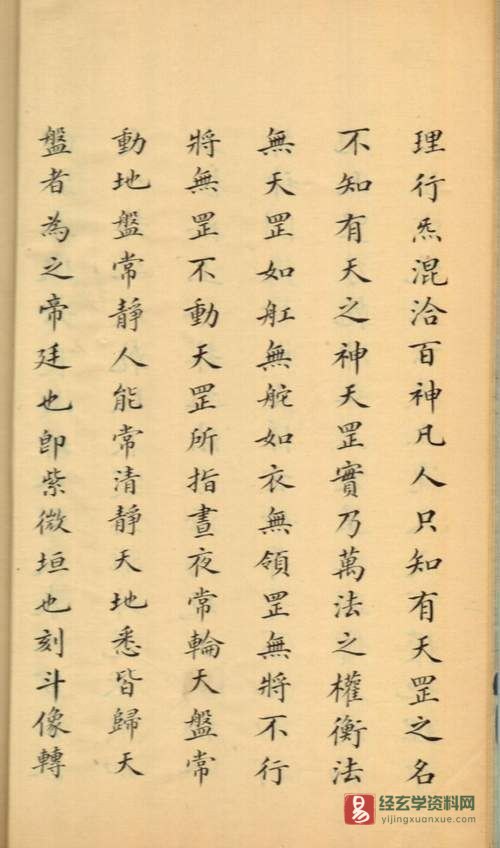 理行炁混洽百神凡人只知有天罡之名
不知有天之神天罡實乃萬法之權衡法
無天罡如舡無舵如衣無領罡無將不行
將無罡不動天罡所指晝夜常輪天盤常
動地盤常靜人能常清靜天地悉皆歸天
盤者為之帝廷也即紫微垣也刻斗像轉
易
经玄学资料网
yijingxuanxue.com